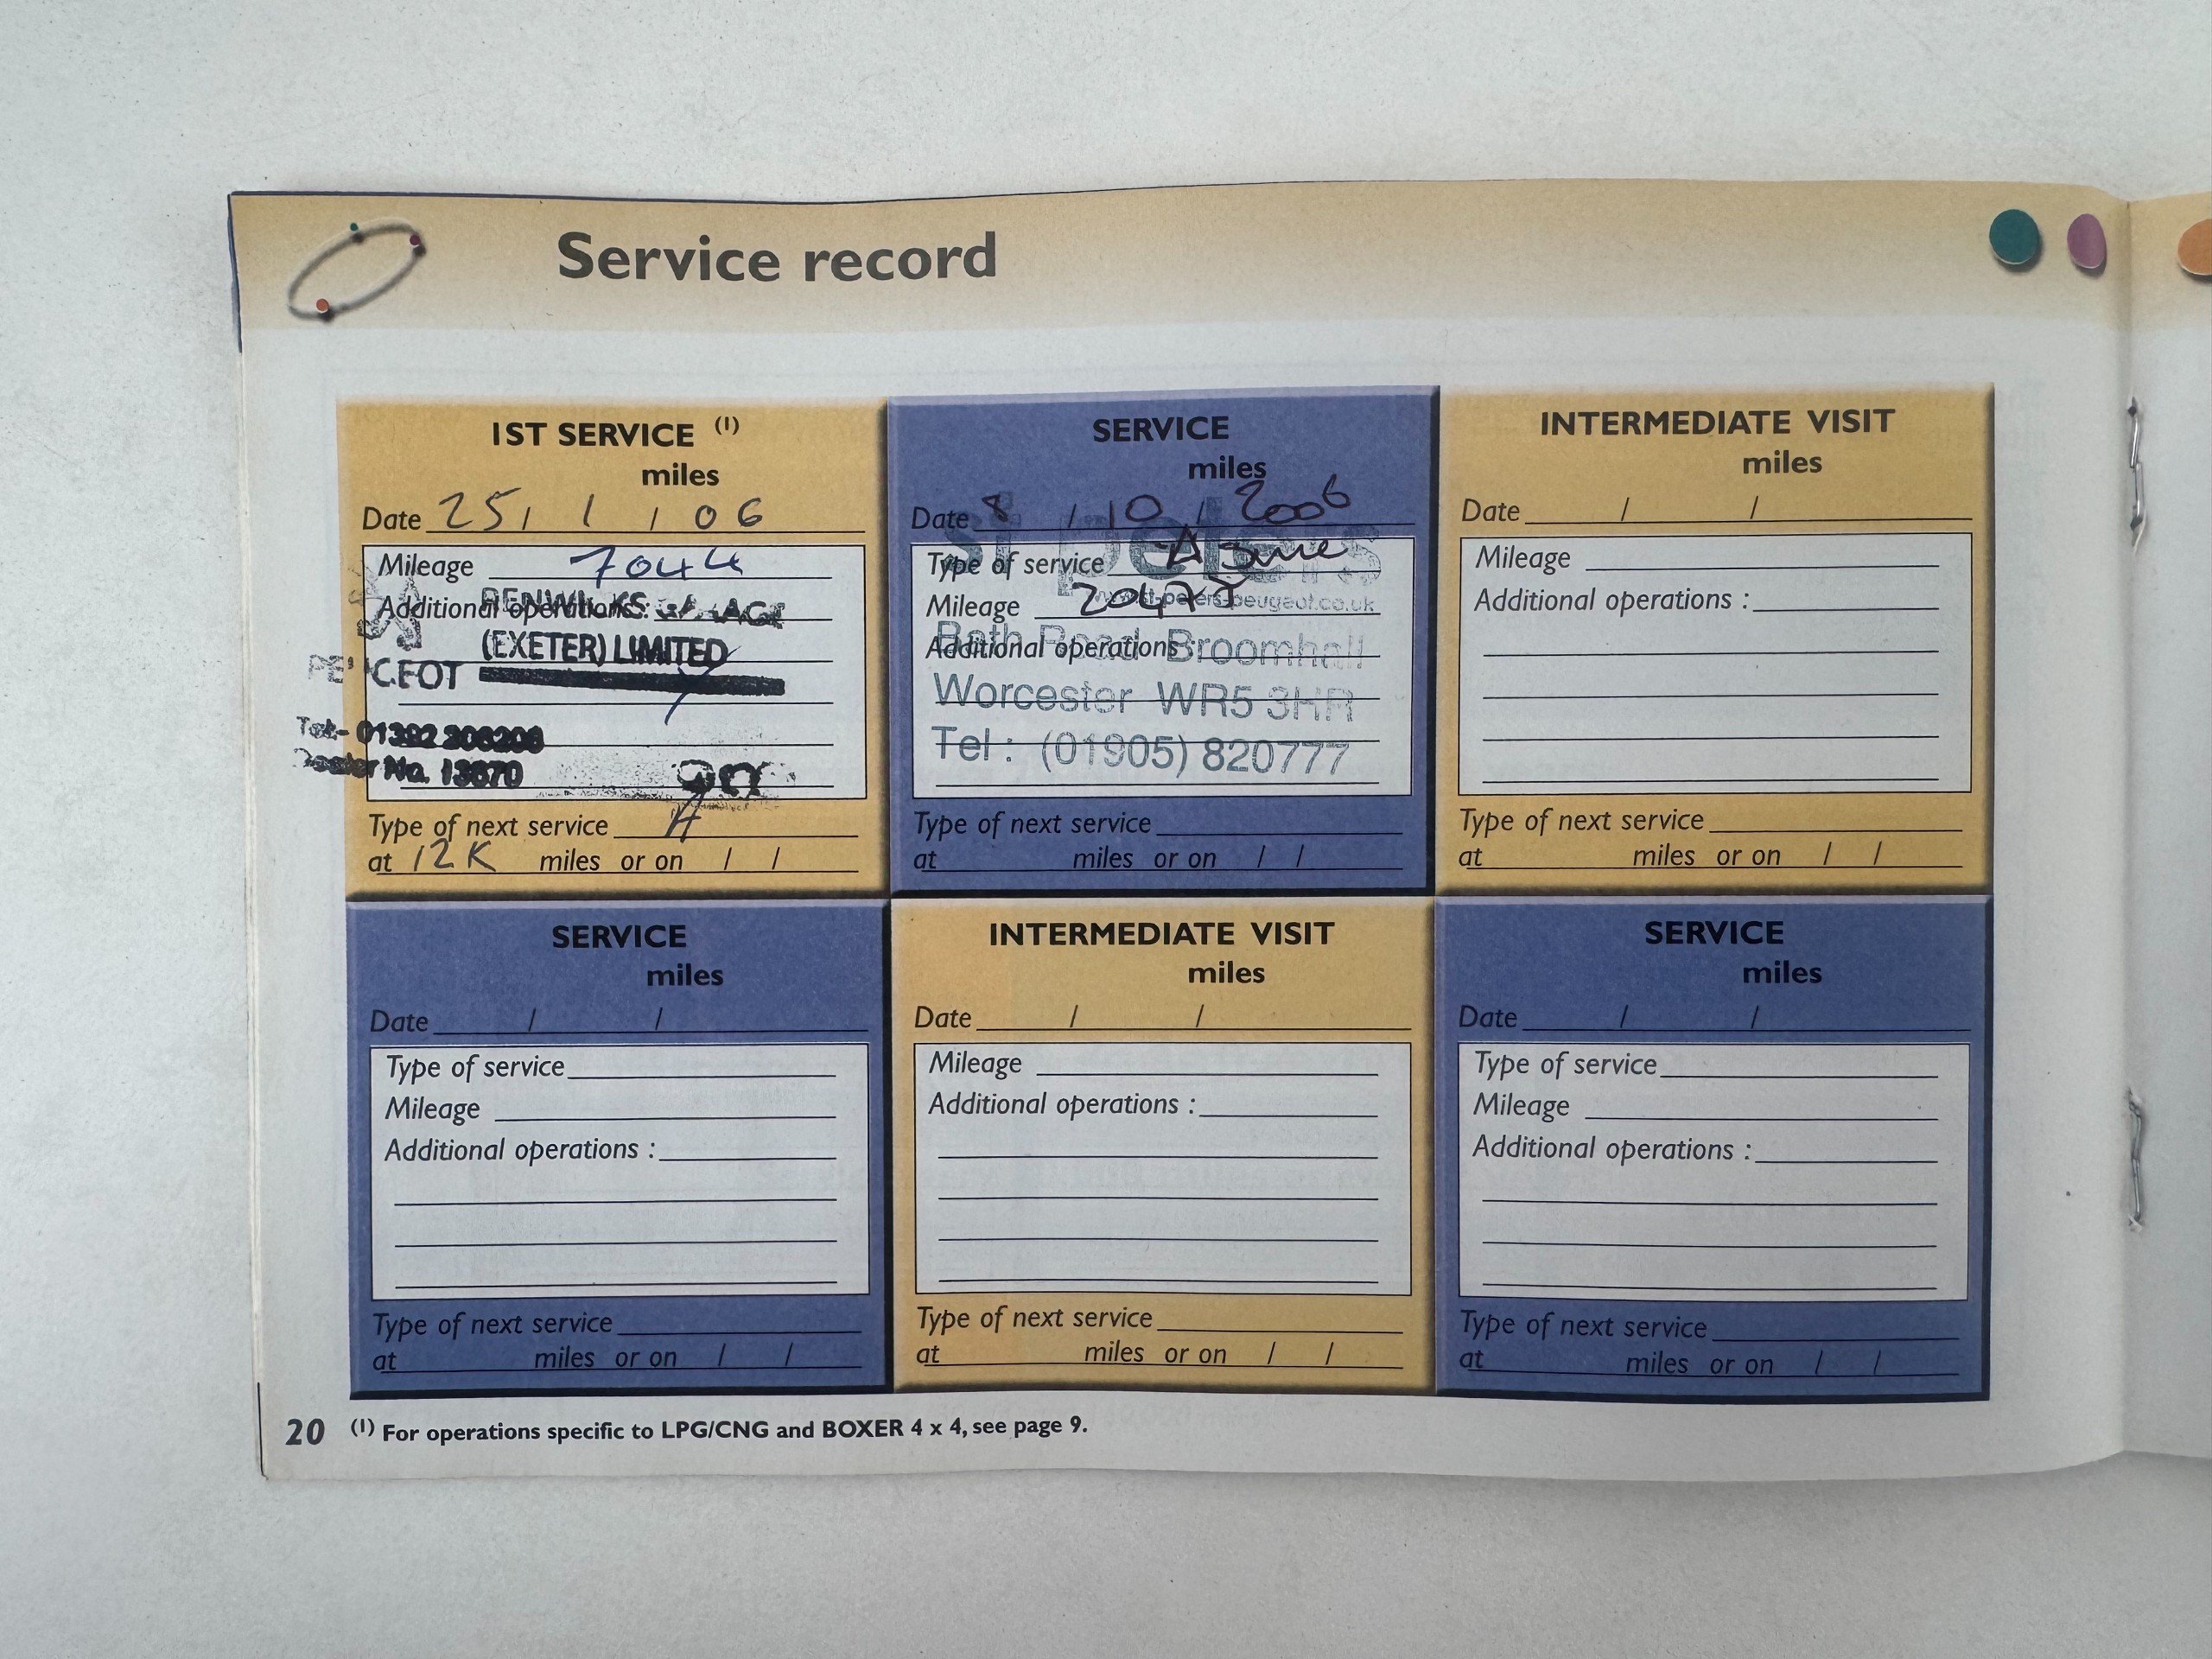 Service record
1ST SERVICE (1)
miles
Date 25 / 1 / 06
Mileage 7044
Additional operations :
RENWICKS GARAGE
(EXETER) LIMITED
PEUGEOT
Tel:-
Dealer No. 13670
Type of next service A
at 12K miles or on / /
SERVICE
miles
Date 8 / 10 / 2006
st peters
Type of service A
Mileage
www.st-peters-peugeot.co.uk
Additional operations :
Bath Road Broomhall
Worcester WR5 3HR
Tel : (01905) 820777
Type of next service
at miles or on / /
INTERMEDIATE VISIT
miles
Date / /
Mileage
Additional operations :
Type of next service
at miles or on / /
SERVICE
miles
Date / /
Type of service
Mileage
Additional operations :
Type of next service
at miles or on / /
INTERMEDIATE VISIT
miles
Date / /
Mileage
Additional operations :
Type of next service
at miles or on / /
SERVICE
miles
Date / /
Type of service
Mileage
Additional operations :
Type of next service
at miles or on / /
20 (1) For operations specific to LPG/CNG and BOXER 4 x 4, see page 9.